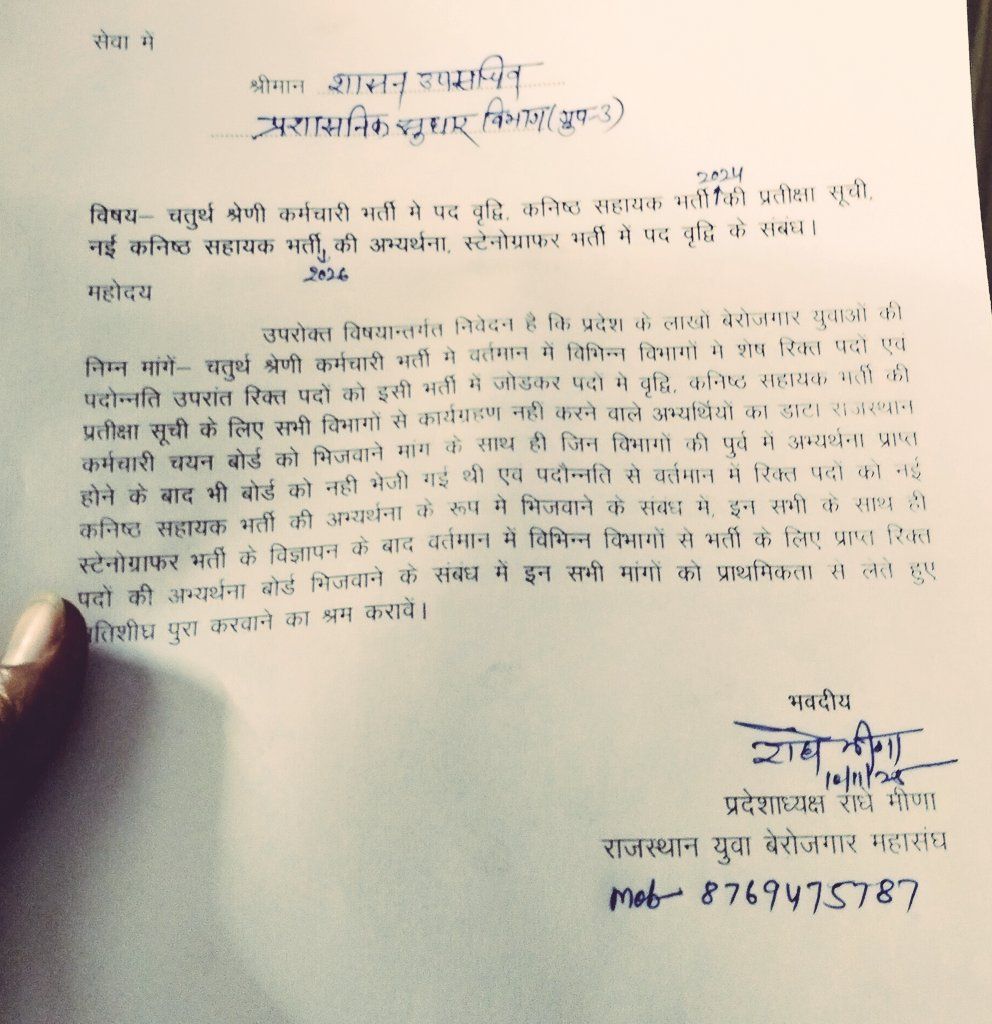 सेवा में
श्रीमान शासन उपसचिव
प्रशासनिक सुधार विभाग (ग्रुप-3)
2024
विषय– चतुर्थ श्रेणी कर्मचारी भर्ती मे पद वृद्वि, कनिष्ठ सहायक भर्ती की प्रतीक्षा सूची,
नई कनिष्ठ सहायक भर्ती की अभ्यर्थना, स्टेनोग्राफर भर्ती में पद वृद्वि के संबंध।
2026
महोदय
उपरोक्त विषयान्तर्गत निवेदन है कि प्रदेश के लाखों बेरोजगार युवाओं की
निम्न मांगें– चतुर्थ श्रेणी कर्मचारी भर्ती मे वर्तमान में विभिन्न विभागों मे शेष रिक्त पदों एवं
पदोन्नति उपरांत रिक्त पदों को इसी भर्ती में जोडकर पदों मे वृद्वि, कनिष्ठ सहायक भर्ती की
प्रतीक्षा सूची के लिए सभी विभागों से कार्यग्रहण नही करने वाले अभ्यर्थियों का डाटा राजस्थान
कर्मचारी चयन बोर्ड को भिजवाने मांग के साथ ही जिन विभागों की पुर्व में अभ्यर्थना प्राप्त
होने के बाद भी बोर्ड को नही भेजी गई थी एवं पदौन्नति से वर्तमान में रिक्त पदों को नई
कनिष्ठ सहायक भर्ती की अभ्यर्थना के रूप मे भिजवाने के संबध मे, इन सभी के साथ ही
स्टेनोग्राफर भर्ती के विज्ञापन के बाद वर्तमान में विभिन्न विभागों से भर्ती के लिए प्राप्त रिक्त
पदों की अभ्यर्थना बोर्ड भिजवाने के संबंध में इन सभी मांगों को प्राथमिकता से लेते हुए
तिशीघ्र पुरा करवाने का श्रम करावें।
भवदीय
राधे मीणा
10/11/25
प्रदेशाध्यक्ष राधे मीणा
राजस्थान युवा बेरोजगार महासंघ
Mob 8769475787